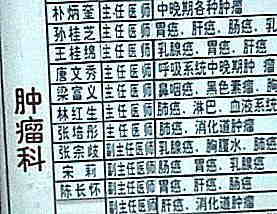 肿瘤科
朴炳奎 主任医师 中晚期各种肿瘤
孙桂芝 主任医师 胃癌、肝癌、肠癌、乳
王桂绵 主任医师 乳腺癌、胃癌、肝癌
唐文秀 主任医师 呼吸系统中晚期肿瘤
梁富义 主任医师 鼻咽癌、黑色素瘤、胸
林红生 主任医师 肺癌、淋巴、血液系统
张培彤 主任医师 肺癌、消化道肿瘤
张宗歧 副主任医师 乳腺癌、胸腹水、肺癌
宋莉 副主任医师 肠癌、胃癌、乳腺癌
陈长怀 副主任医师 胃癌、肝癌、肠癌
副主任医师 肝癌、消化道肿瘤